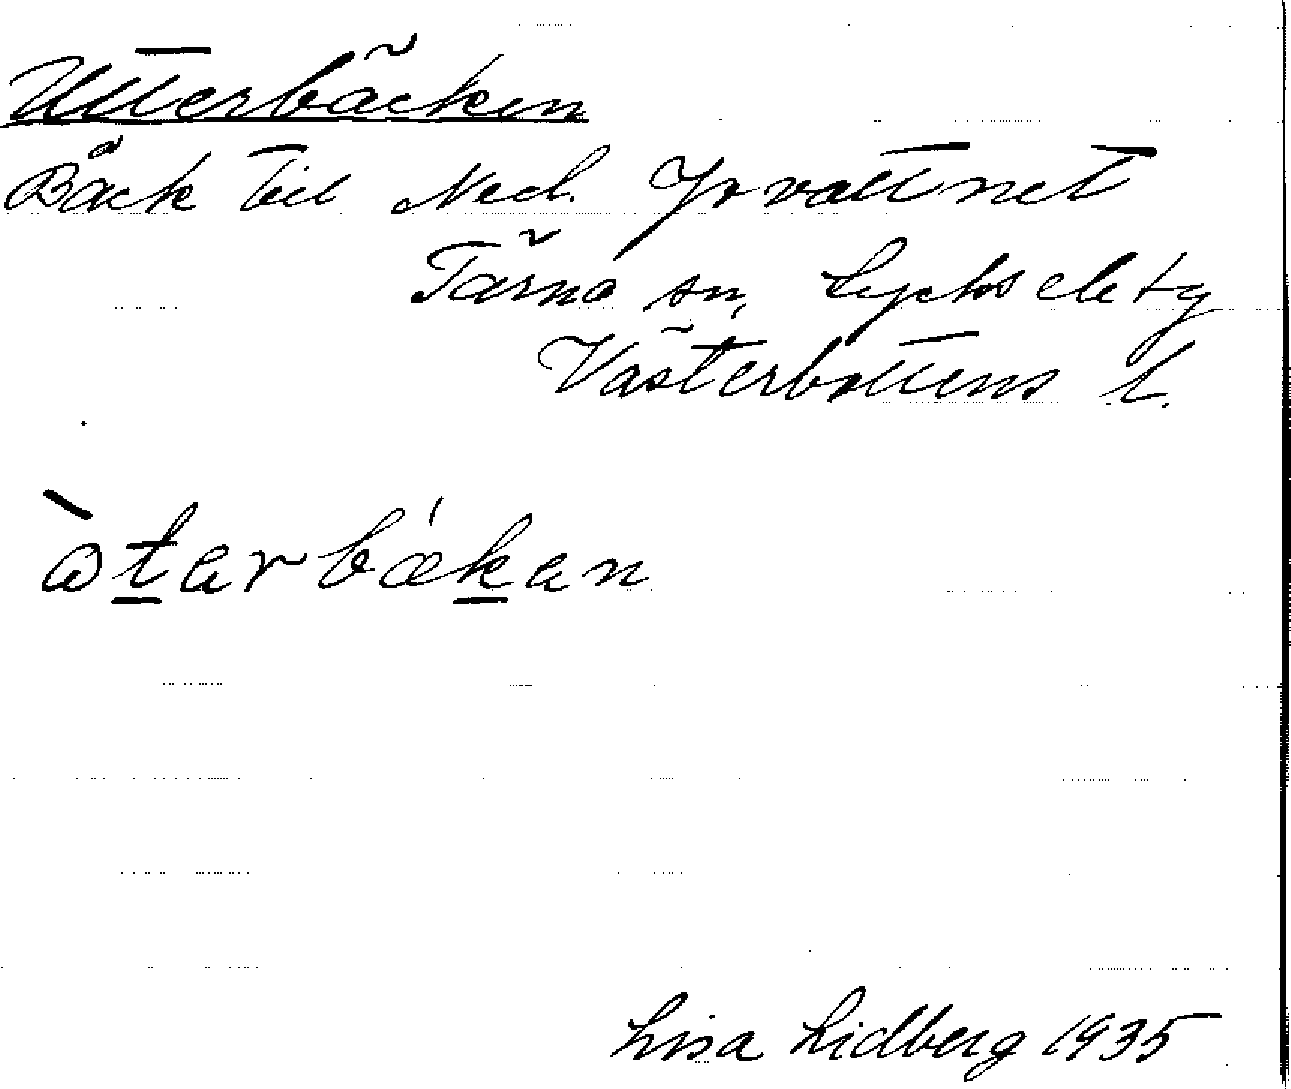 Utterbäcken
Bäck till Ned. Yrvattnet
Tärna sn, Lycksele tg
Västerbottens l.
ətarbækan
Lisa Lidberg 1935